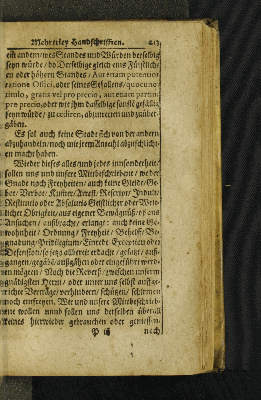 Mehrerley Handschrifften. 213
eist andern/ wes Standes und Würden derselbig
seyn würde/ da Derselbige gleich eins Fürstliche
en oder höhern Standes/ Aut etiam potentior
ratione Officii, oder seines Gefallens/ quocunque
titulo, gratis vel pro precio, aut etiam partim
pro precio, oder wie ihm dasselbige sonsst gefällig
seyn würde/ zu cediren, abzutretten und zu über-
gäben.
Es sol auch keine Stadt sich von der andern
abzuhandeln/ noch mit ihrem Antheil abzuschlieb-
en macht haben.
Wieder dieses alles/ und jedes insonderheit/
sollen uns und unsere Mitbeschriebene/ weder
Gnade noch Freyheiten/ auch keine Gleide/ Ge-
bot/ Verbot/ Kumer/ Arrest/ Rescript/ Induct/
Restitutio oder Absolutio Geistlicher oder Welt-
licher Obrigkeit/ aus eigener Bewägnüß/ es aus
Ansuchen/ außbracht/ erlangt: auch keine Ge-
wohnheit/ Ordnung/ Freyheit/ Beheiß/ Be-
gnadung/ Privilegium/ Einrede Exception oder
Defension/ so jezo albereit erdacht/ gesatzt/ auß-
gangen/ gegäbe/ außgähen oder eingeführt werd-
en mögen/ Noch die Reverß/ zwischen unserm
gnädigsten Herrn/ oder unter uns selbst auffge-
richte Verträge/ verhindern/ schützen/ schirmen
noch einfreyen. Wir und unsere Mitbeschrieb-
ene wollen unnd sollen uns derselben überall
keines hierwieder gebrauchen oder geniessen/
P iij noch